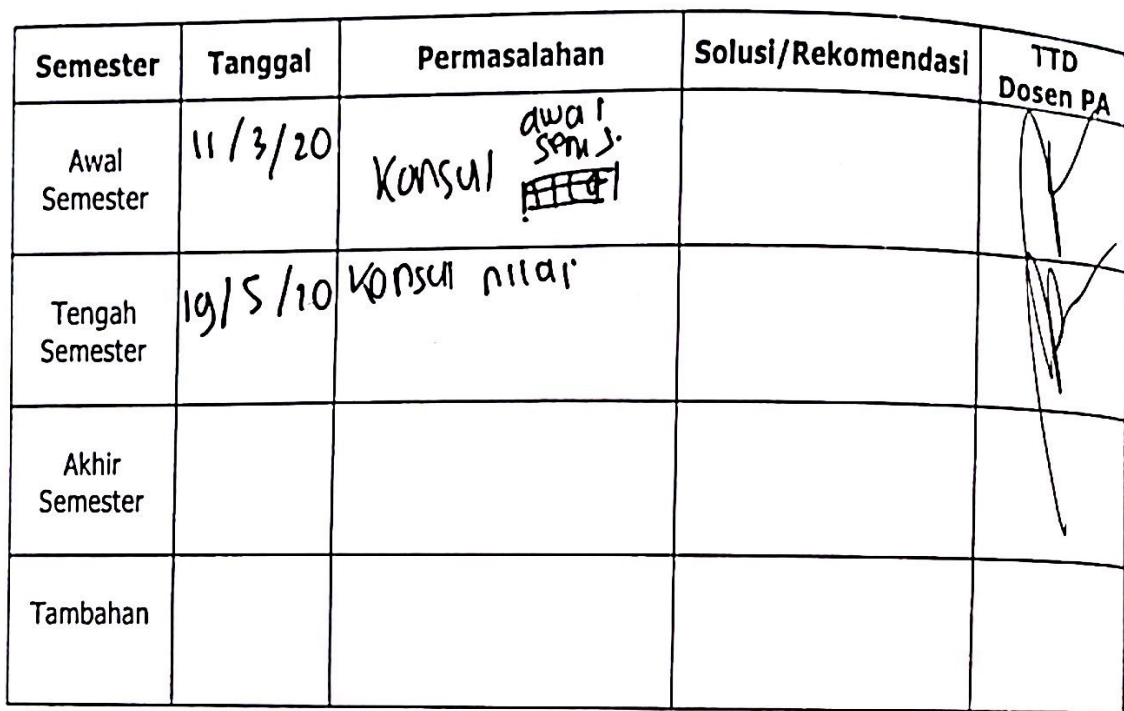 Semester Tanggal Permasalahan Solusi/Rekomendasi TTD
Dosen PA
Awal
Semester
11/3/20
Konsul
awal
sems.
Tengah
Semester
19/5/20
Konsul nilai
Akhir
Semester
Tambahan